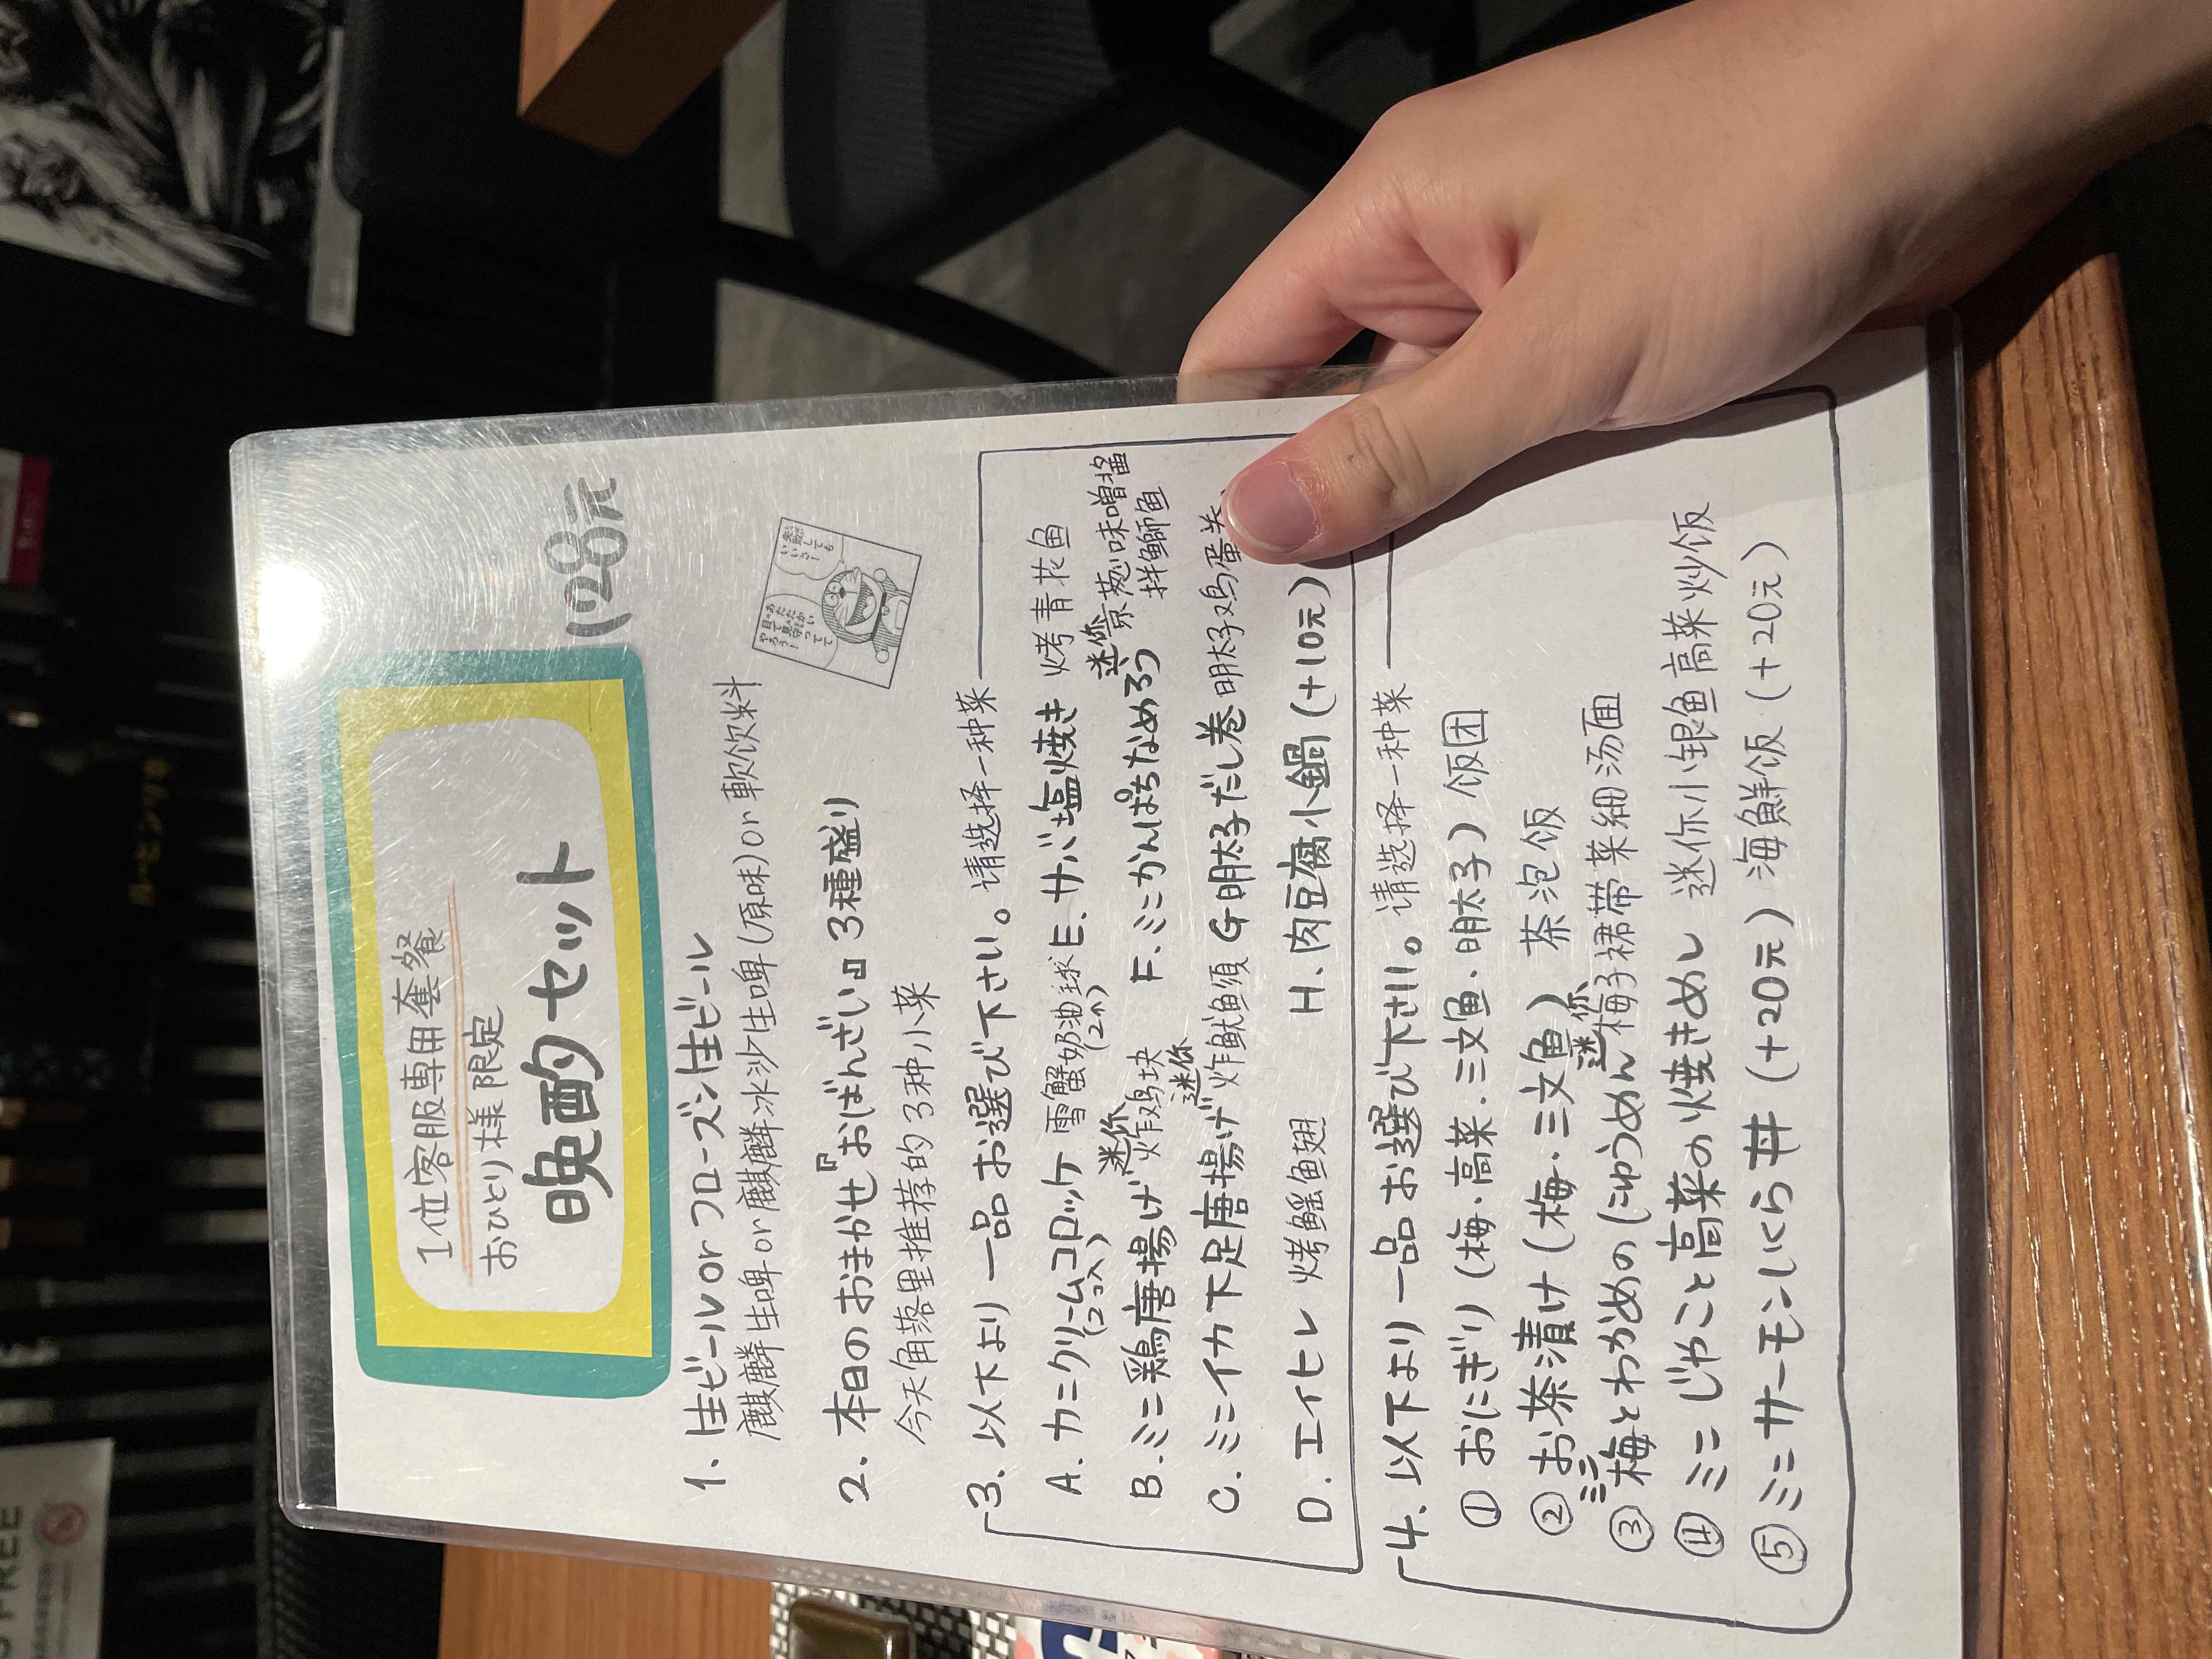 1位客服専用套餐
おひとり様限定
晩酌セット
128元
1. 生ビール or フローズン生ビール
麒麟生啤 or 麒麟冰沙生啤(原味) or 軟饮料
2. 本日のおまかせ『おばんざい』3種盛り
今天角落里推荐的3种小菜
あたたかい目で見守ってやろう!
失敗してもいいさ!
3. 以下より一品お選び下さい。请选择一种菜
A. カニクリームコロッケ 雪蟹奶油球
(2コ入) (2个)
B. ミニ鶏唐揚げ 迷你炸鸡块
C. ミニイカ下足唐揚げ 迷你炸鱿鱼須
D. エイヒレ 烤鰩鱼翅
E. サバ塩焼き 烤青花鱼
F. ミニかんぱちなめろう 迷你京葱味噌醤
拌鰤鱼
G 明太子だし巻 明太子鸡蛋
H. 肉豆腐小鍋 (+10元)
4. 以下より一品お選び下さい。请选择一种菜
① おにぎり (梅・高菜・三文鱼・明太子) 饭团
② お茶漬け (梅・三文鱼) 茶泡饭
③ ミニ梅とわかめの(にゅうめん 迷你梅子裙带菜細汤面
④ ミニじゃこと高菜の焼きめし 迷你小银鱼高菜炒饭
⑤ ミニサーモンいくら丼 (+20元) 海鮮饭 (+20元)
FREE